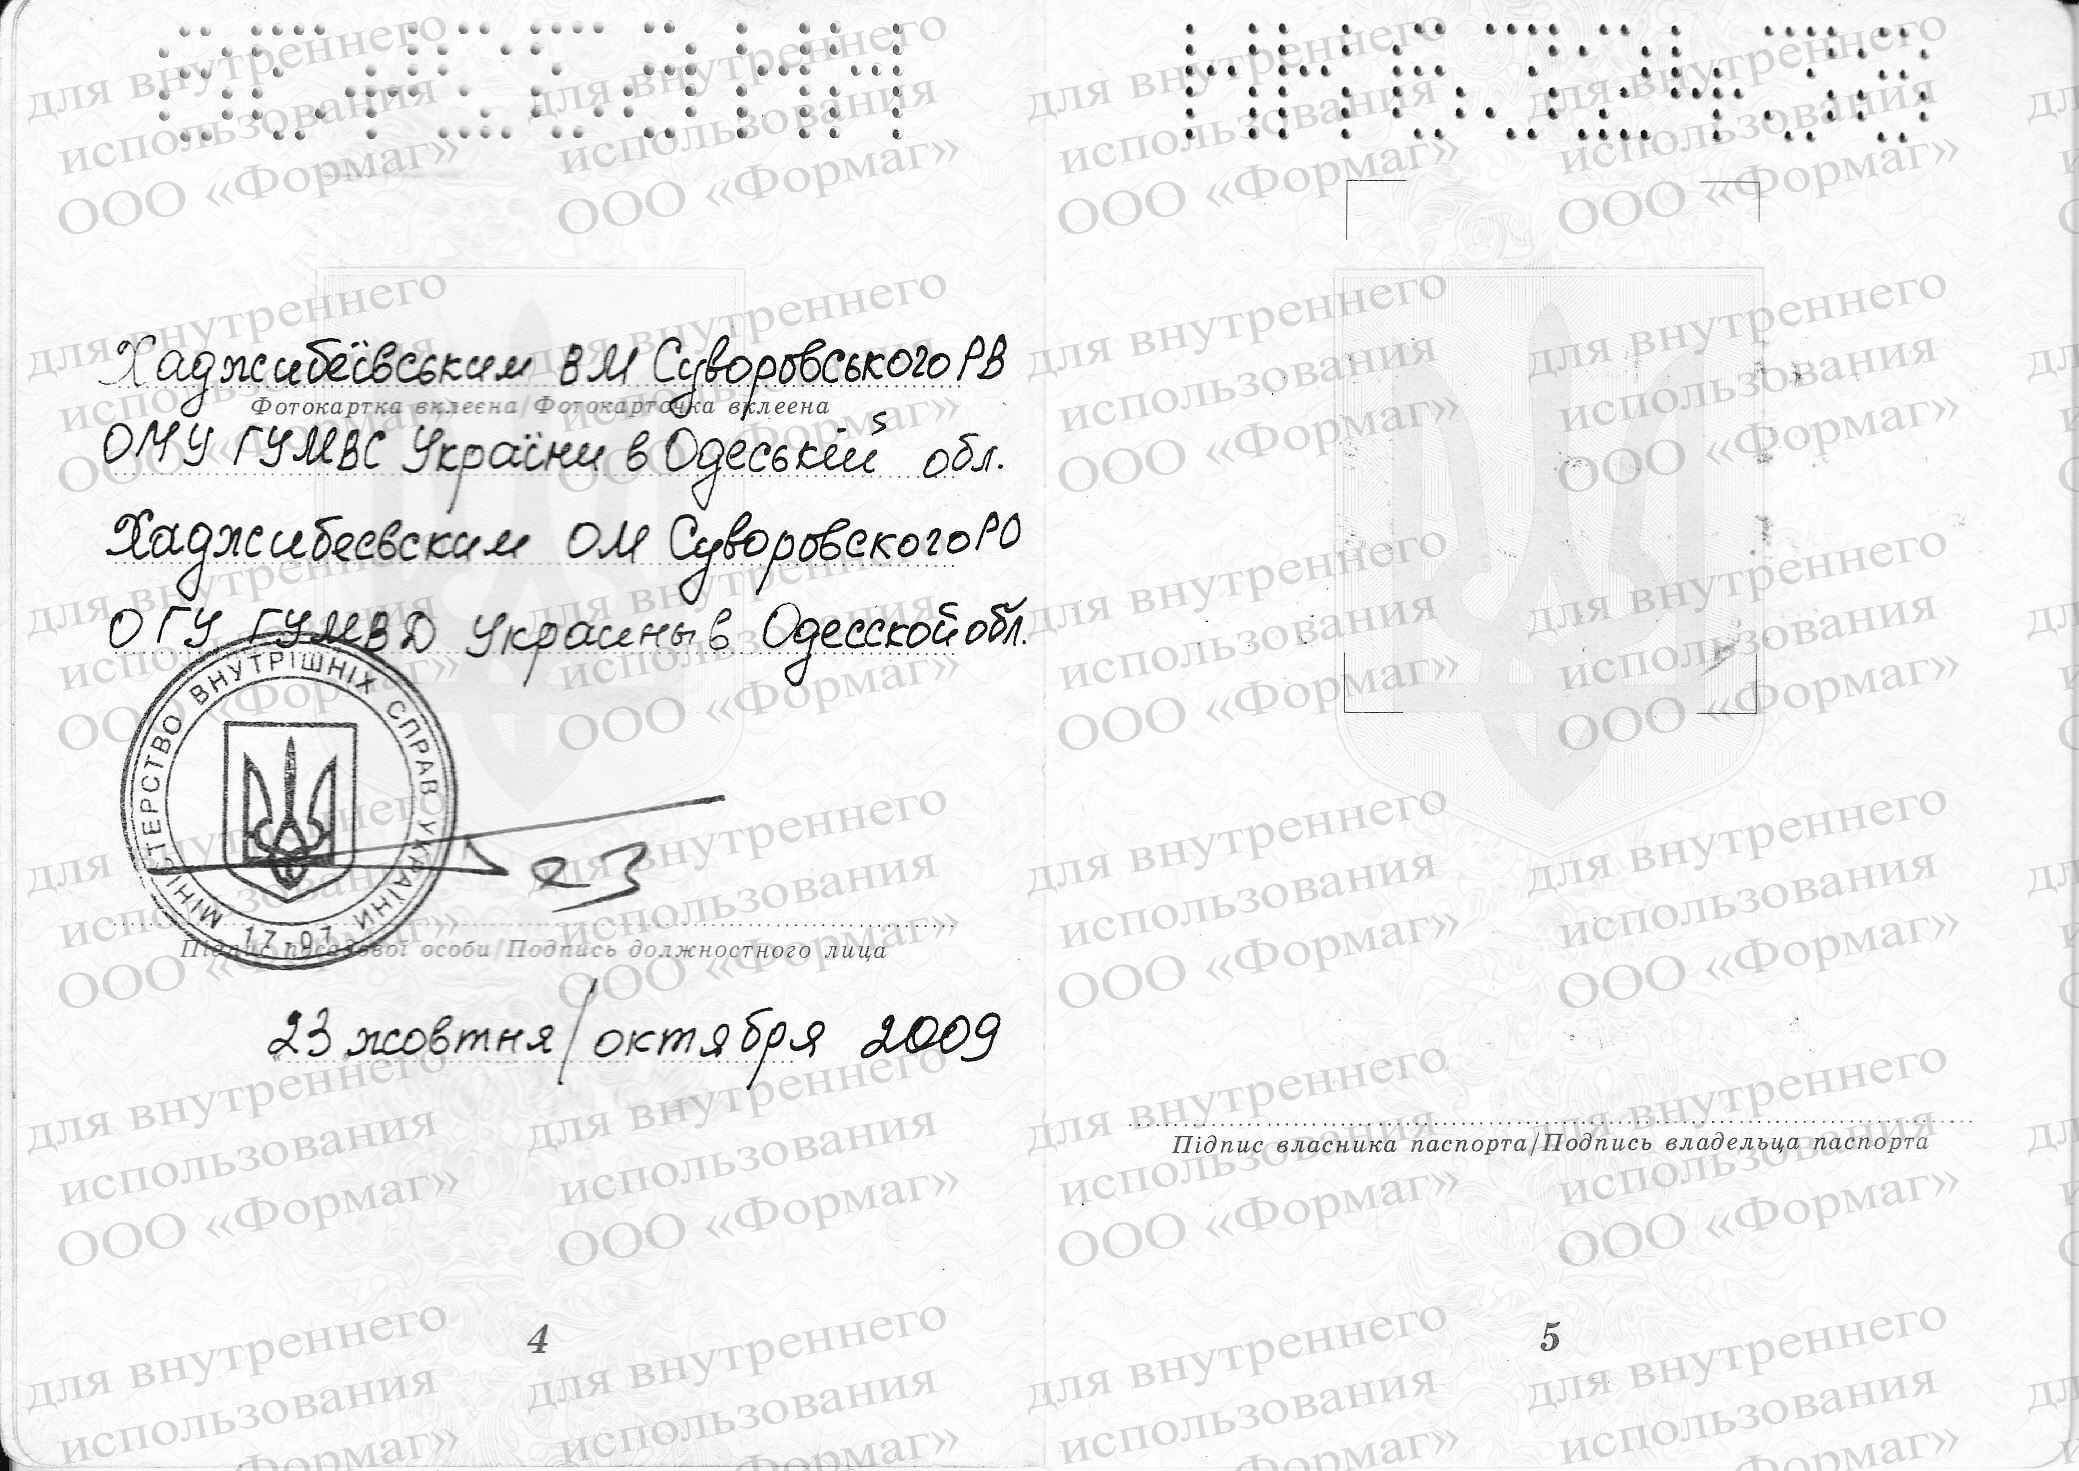 Хаджибеївським ВМ Суворовського РВ
Фотокартка вклеєна/Фотокарточка вклеена
ОМУ ГУМВС України в Одеській обл.
Хаджибеевским ОМ Суворовского РО
ОГУ ГУМВД Украины в Одесской обл.
МІНІСТЕРСТВО ВНУТРІШНІХ СПРАВ УКРАЇНИ
Підпис посадової особи/Подпись должностного лица
23 жовтня/октября 2009
4
Підпис власника паспорта/Подпись владельца паспорта
5
для внутреннего
использования
ООО «Формаг»